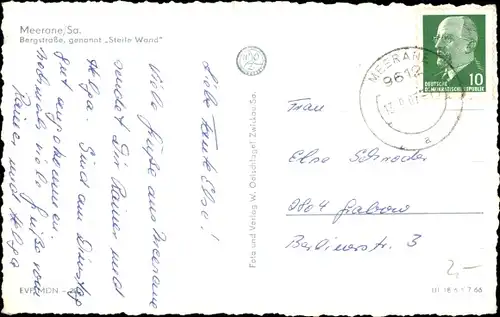 Meerane/Sa.
Bergstraße, genannt „Steile Wand"
Liebe Tante Else!
Viele Grüße aus Meerane
sendet Dir Rainer und
Helga. Sind am Dienstag
gut angekommen
nochmals viele Grüße von
Rainer und Helga
Foto und Verlag W. Oelschlägel Zwickau/Sa.
MEERANE
9612
a
DEUTSCHE
DEMOKRATISCHE REPUBLIK
10
Frau
Else
2804 Grabow
Berlinerstr. 3
2,-
III 18 6 1 7 66